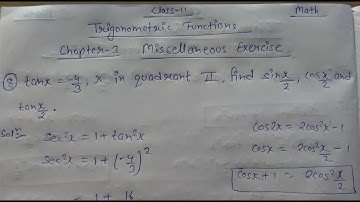 Class-11
Math
Trigonometric Functions
Chapter-3 Miscellaneous Exercise
⑧ tanx = -4/3, x in quadrant II, find sin x/2, cos x/2 and
tan x/2.
Solⁿ
sec²x = 1 + tan²x
sec²x = 1 + (-4/3)²
= 1 + 16
cos2x = 2cos²x - 1
cosx = 2cos² x/2 - 1
cosx + 1 = 2cos² x/2